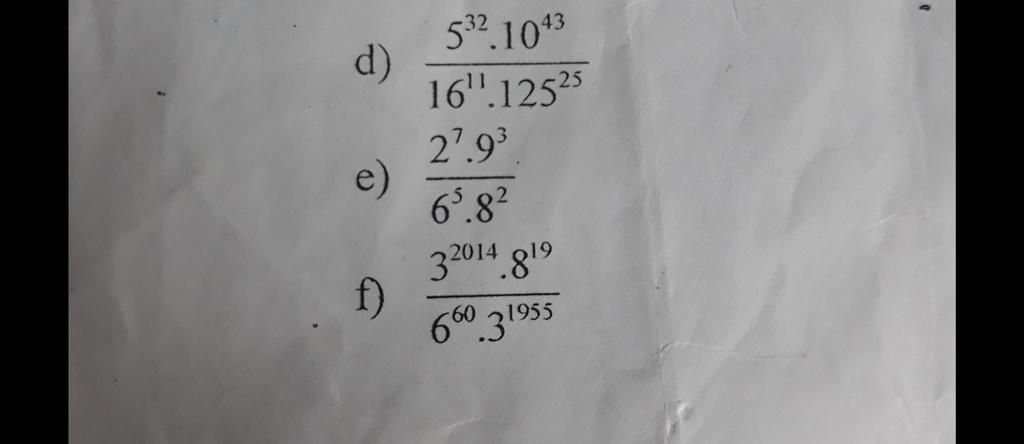 d) \frac{5^{32}.10^{43}}{16^{11}.125^{25}}
e) \frac{2^{7}.9^{3}}{6^{5}.8^{2}}
f) \frac{3^{2014}.8^{19}}{6^{60}.3^{1955}}